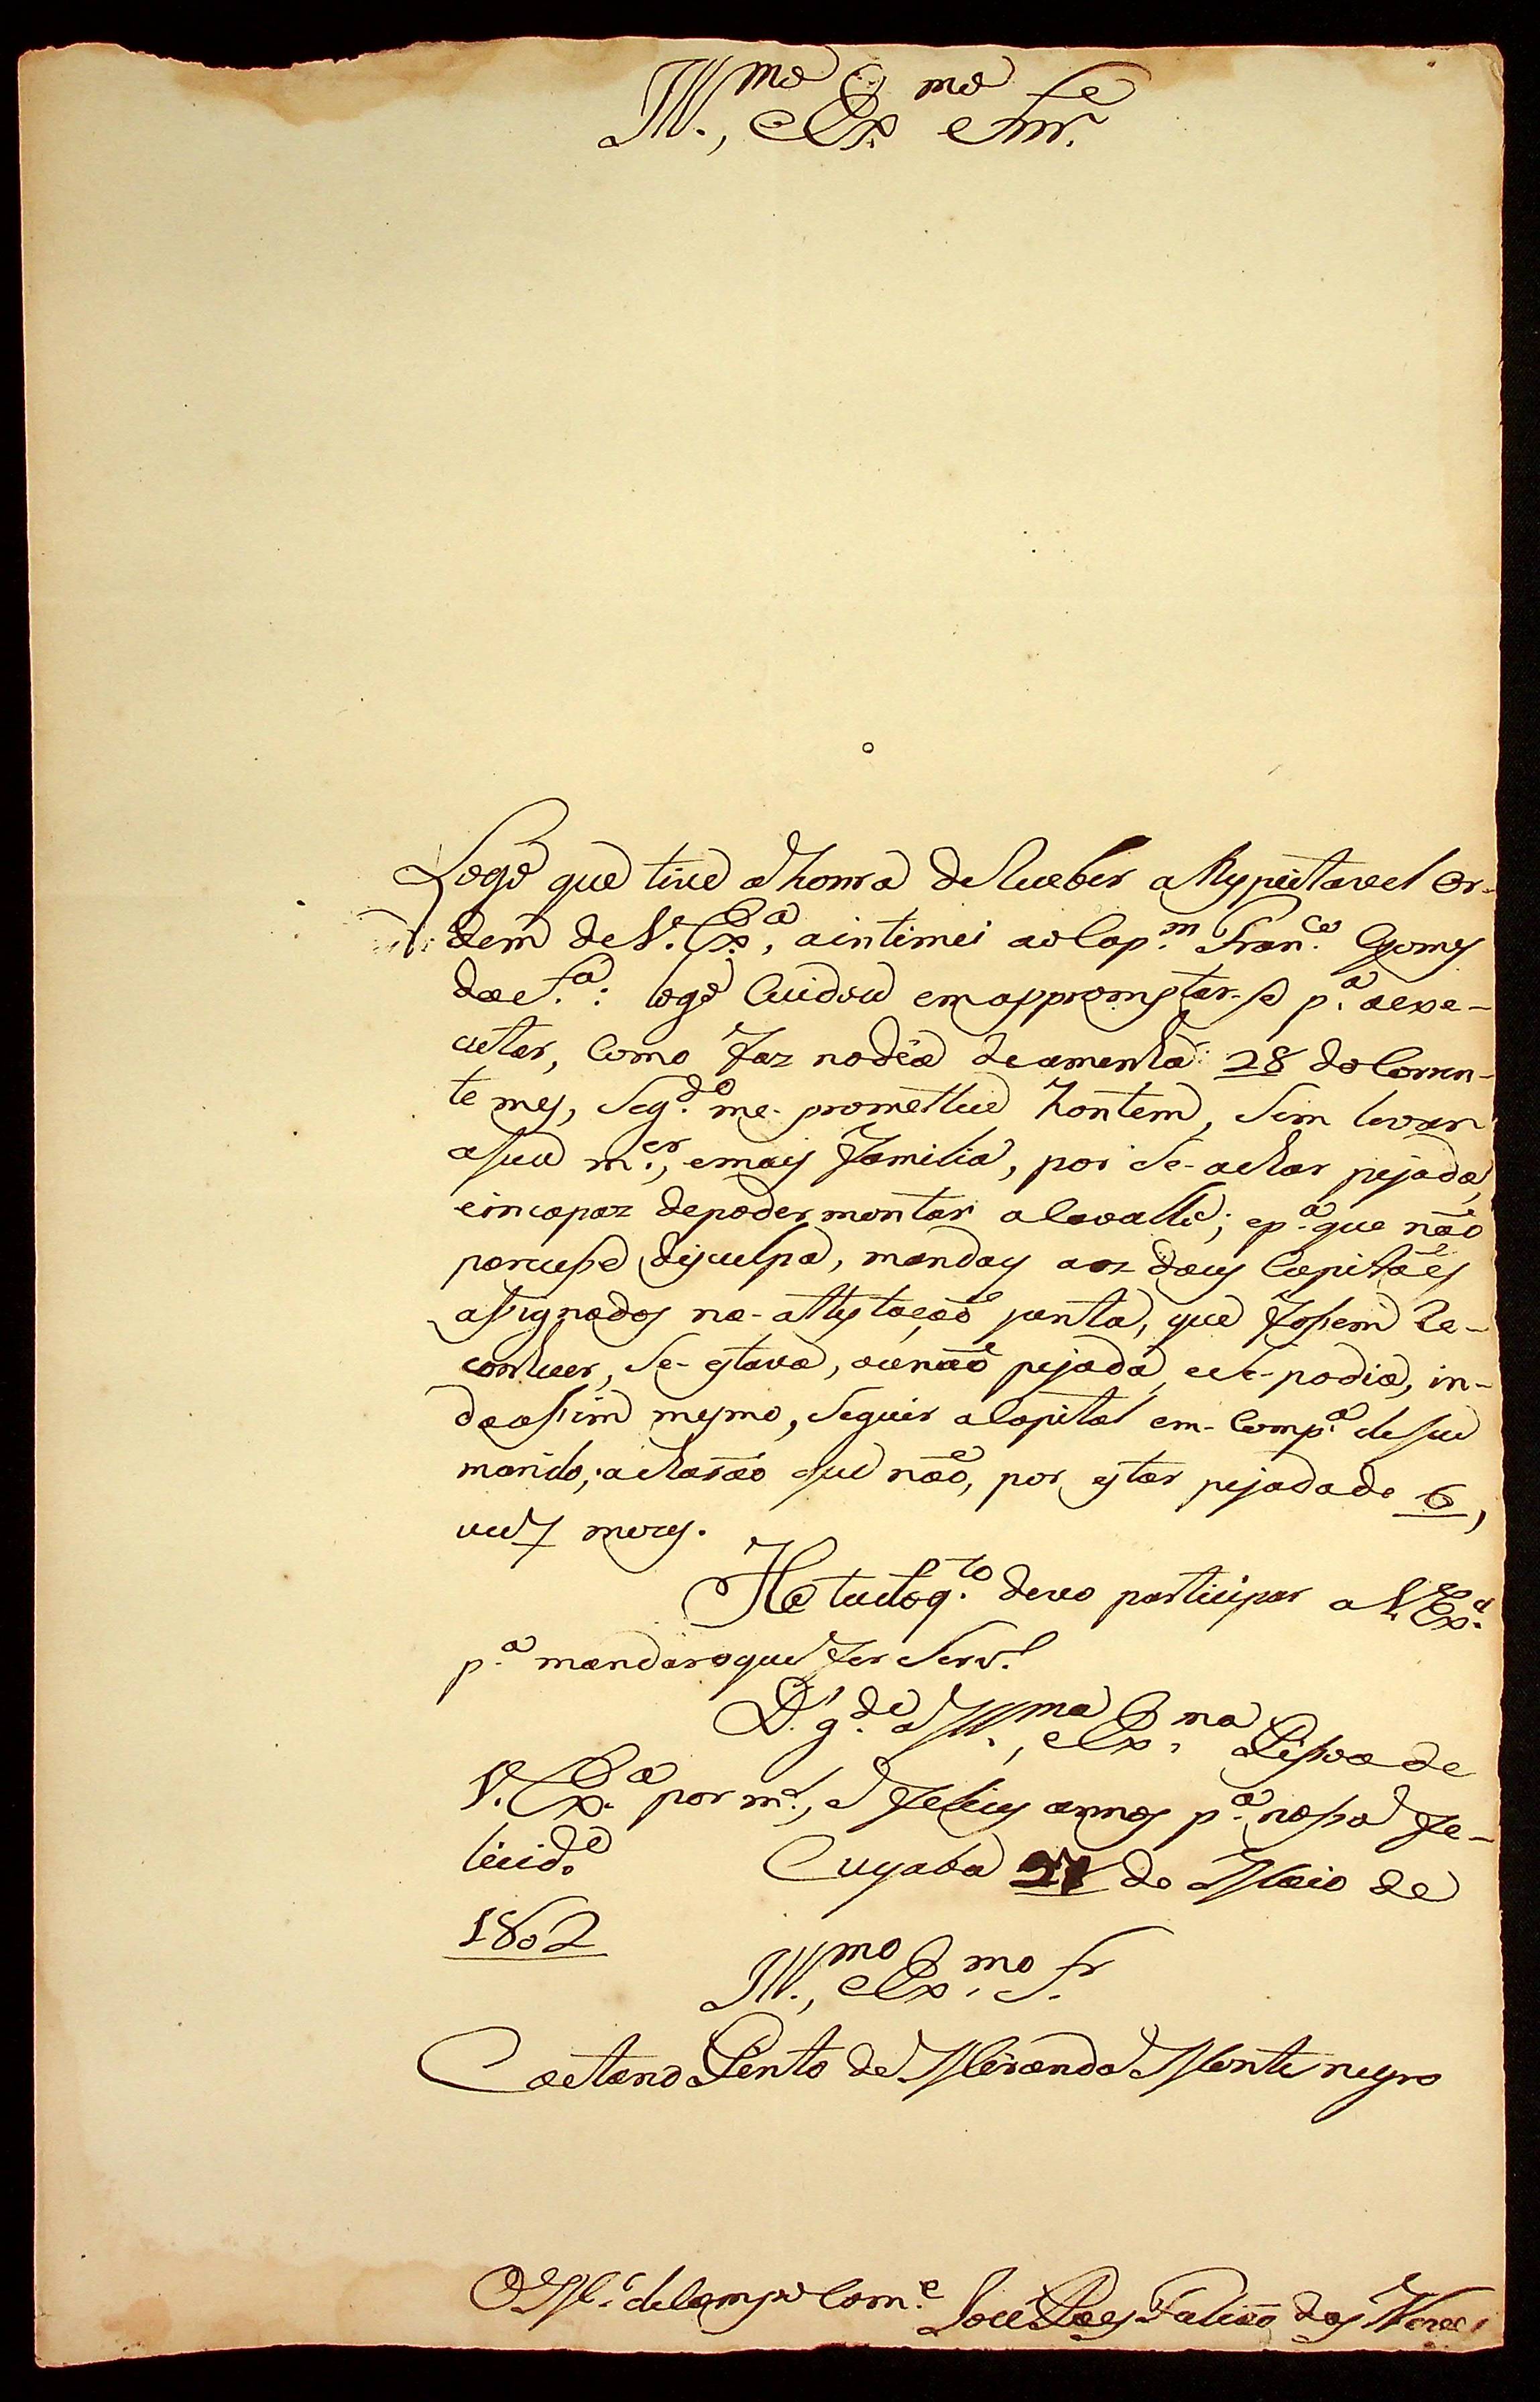 Ill.mo, e Ex.mo Snr.
Logo que tive a honra de Receber a Respeitavel Or-
dem de V. Ex.a, a intimei ao Cap.m Fran.co Gomes
da S.a: logo Cuidou em appromptar-se p.a a exe-
cutar, Como faz no dia de amenhã 28 do Corren-
te mes, Seg.do me-prometteu hontem, Sem levar
a sua m.er, e mais familia, por Se-achar pejada,
e incapaz de poder montar a Cavallo; e p.a que não
parecesse disculpa, mandey aos dous Capitães
assignados na-attestação junta, que fossem Re-
conhecer, Se-estava, ou não pejada, e se-podia, in-
da assim mesmo, Seguir a Capital em-Comp.a de seu
marido; acharão que não, por estar pejada de 6,
ou 7 mezes.
He tudo q.to devo participar a V. Ex.a
p.a mandar o que for Serv.l
D.s g.de a Ill.ma, e Ex.ma Pessoa de
V. Ex.a por m.s, e felices annos p.a nossa fe-
licid.e Cuyabá 27 de Maio de
1802
Ill.mo, e Ex.mo S.r
Caetano Pinto de Miranda Montenegro
O M.e de Campo Com.e José Paes Falcão das Neves